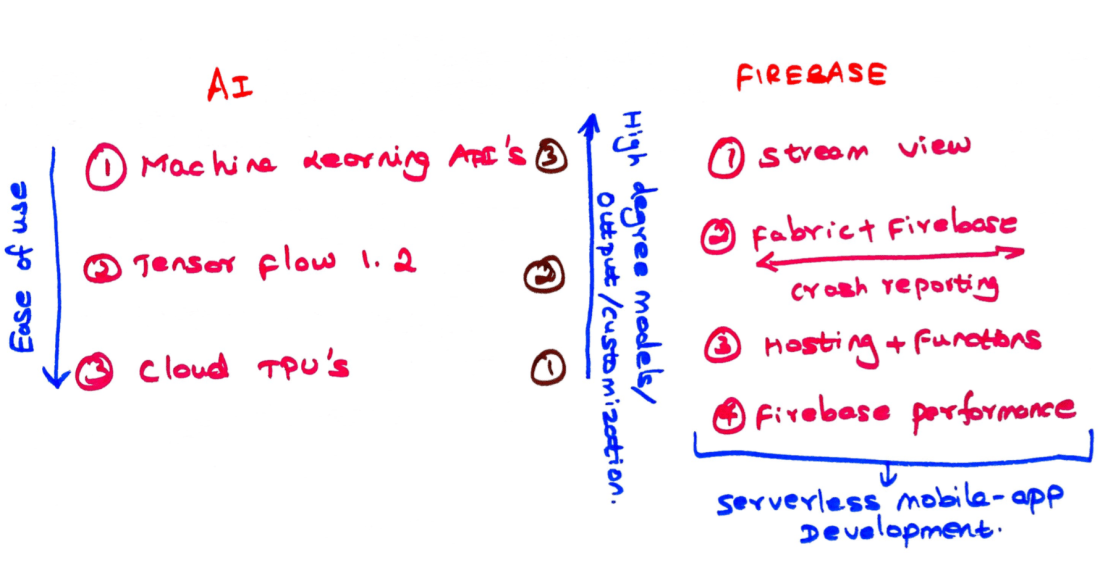 AI
① Machine Learning API's ③
② Tensor flow 1.2 ②
③ Cloud TPU's ①
Ease of use
High degree models/
output/customization.
FIREBASE
① Stream view
② Fabric + Firebase
crash reporting
③ Hosting + Functions
④ Firebase performance
Serverless mobile-app
Development.